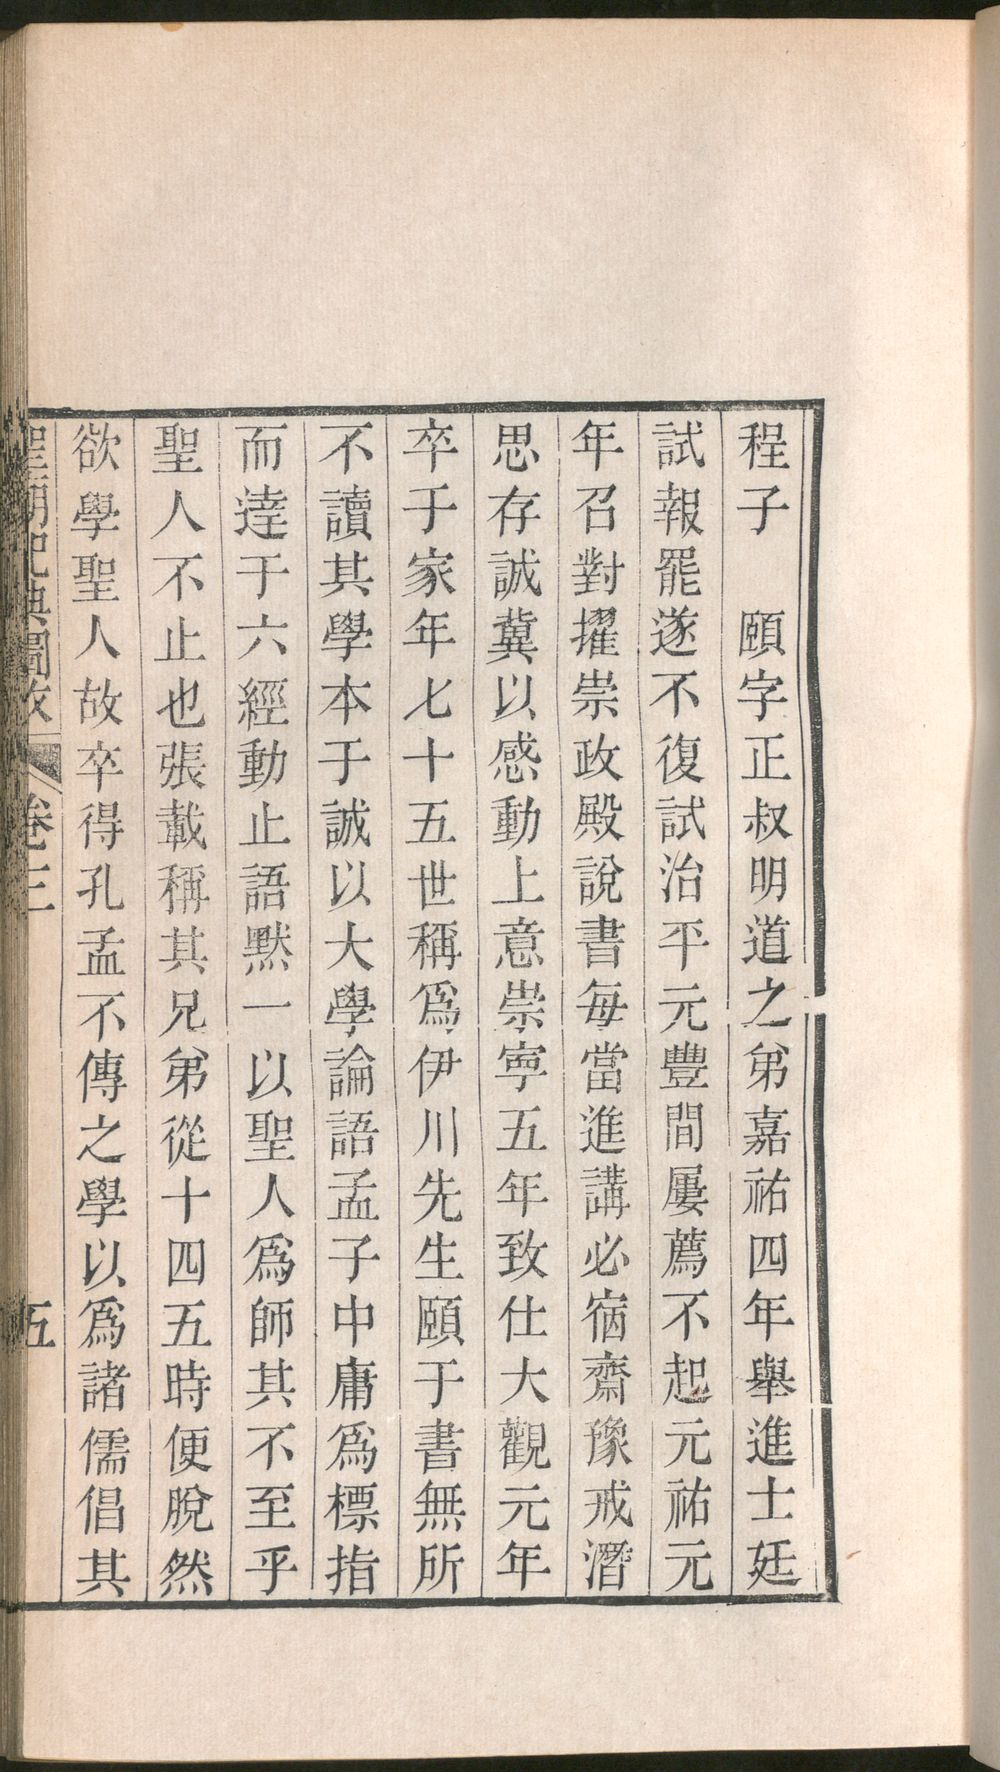 程子　頤字正叔明道之弟嘉祐四年舉進士廷
試報罷遂不復試治平元豐間屢薦不起元祐元
年召對擢崇政殿說書每當進講必宿齋豫戒潛
思存誠冀以感動上意崇寧五年致仕大觀元年
卒于家年七十五世稱爲伊川先生頤于書無所
不讀其學本于誠以大學論語孟子中庸爲標指
而達于六經動止語默一以聖人爲師其不至乎
聖人不止也張載稱其兄弟從十四五時便脫然
欲學聖人故卒得孔孟不傳之學以爲諸儒倡其
聖廟祀典圖攷 卷三 五